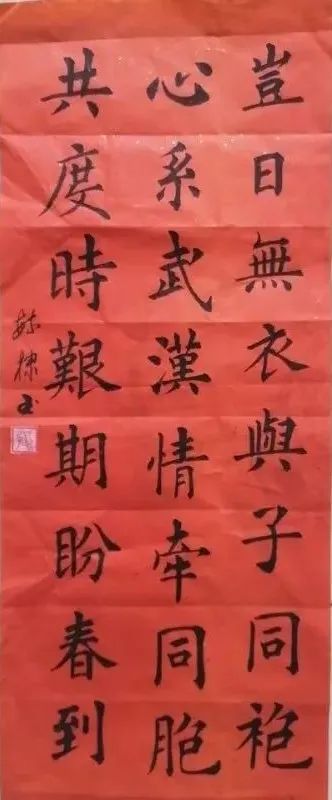 豈日無衣與子同袍
心系武漢情牽同胞
共度時艱期盼春到
書